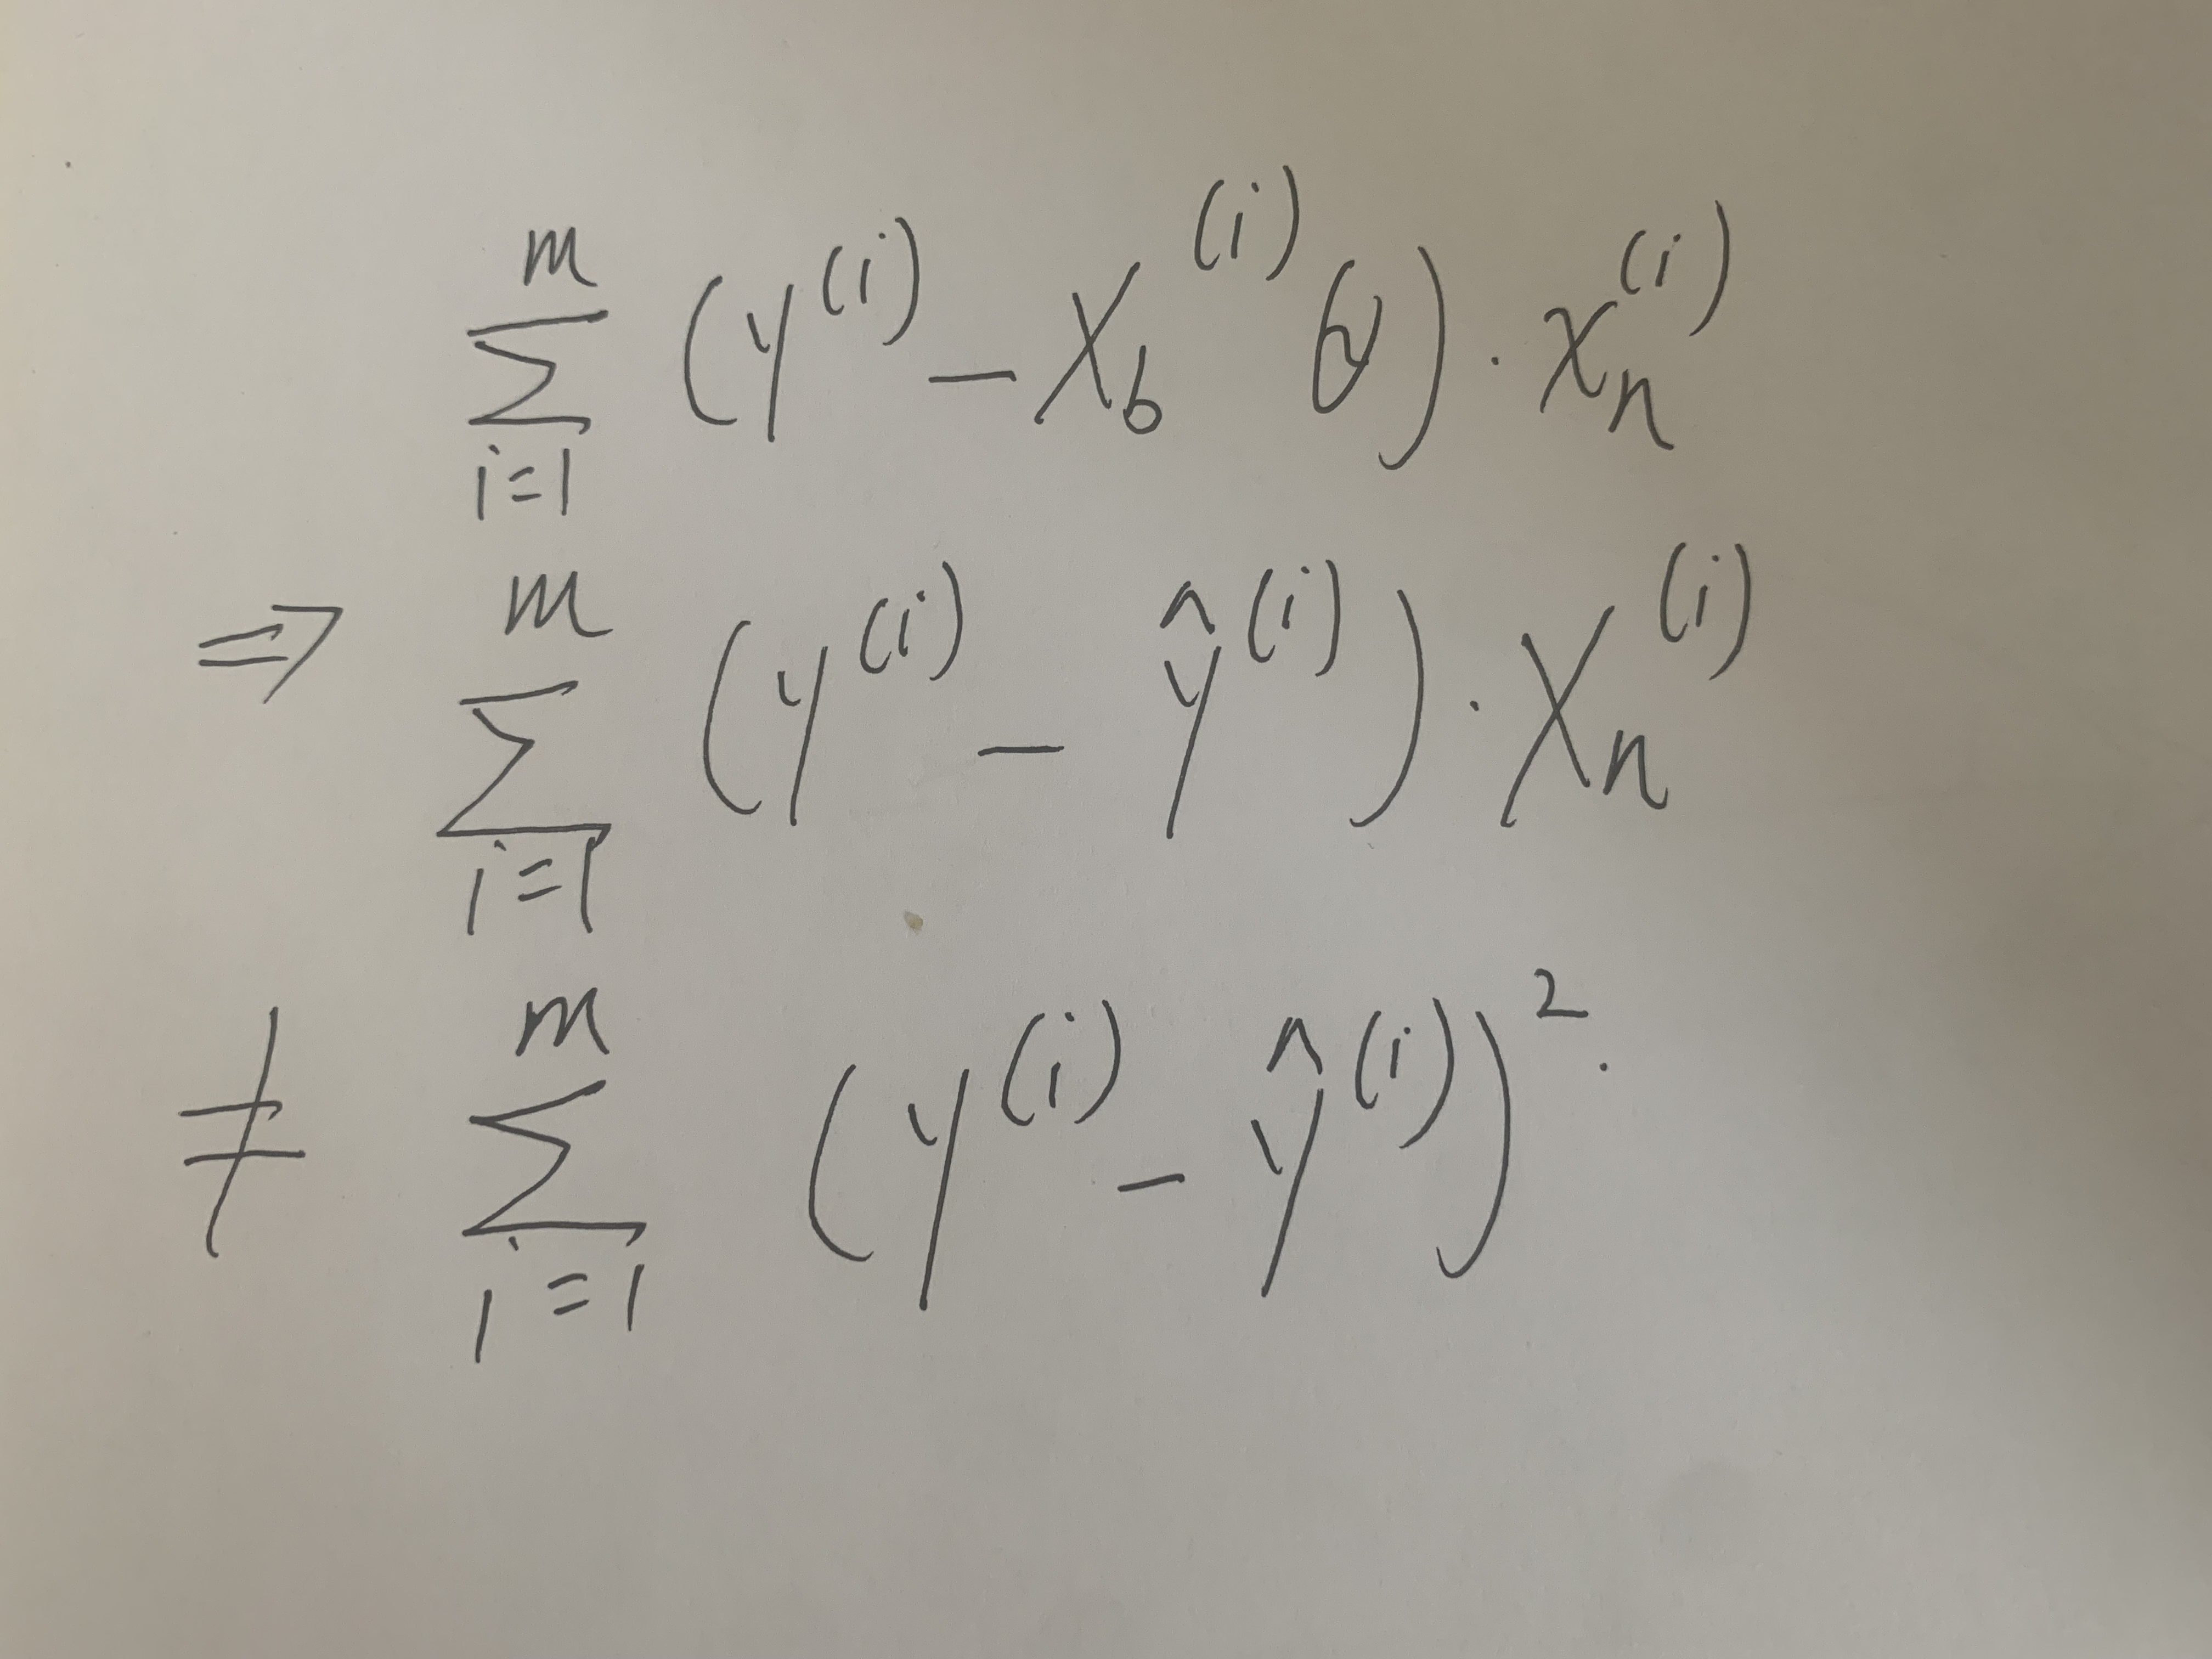 $\sum_{i=1}^{m} (y^{(i)} - X_b^{(i)} \theta) \cdot x_n^{(i)}$
$\Rightarrow \sum_{i=1}^{m} (y^{(i)} - \hat{y}^{(i)}) \cdot X_n^{(i)}$
$\neq \sum_{i=1}^{m} (y^{(i)} - \hat{y}^{(i)})^2.$